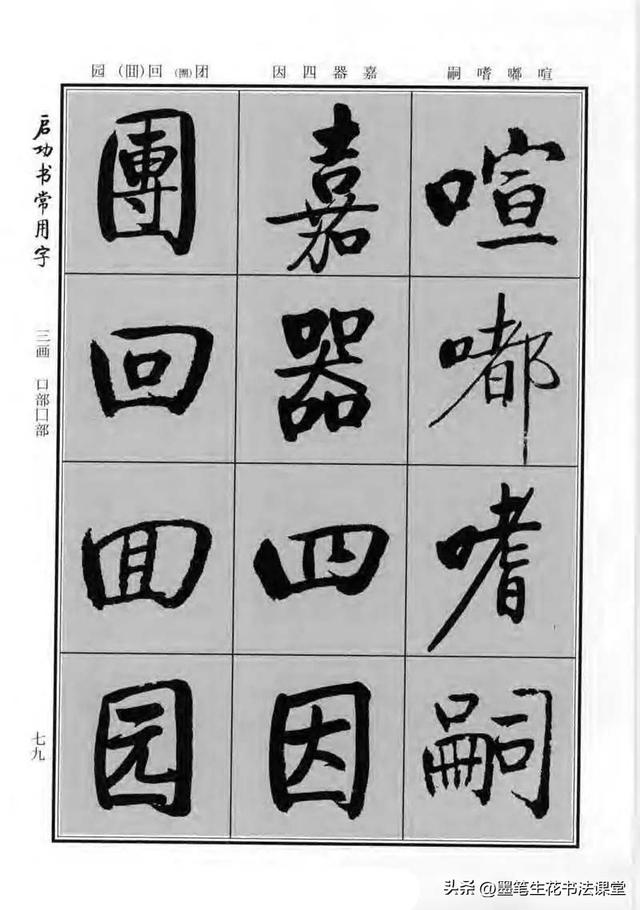 园(囬)回(團)团 因四器嘉 嗣嗜嘟喧
启功书常用字
三画 口部囗部
七九
喧嘟嗜嗣
嘉器四因
團回囬园
头条 @墨笔生花书法课堂